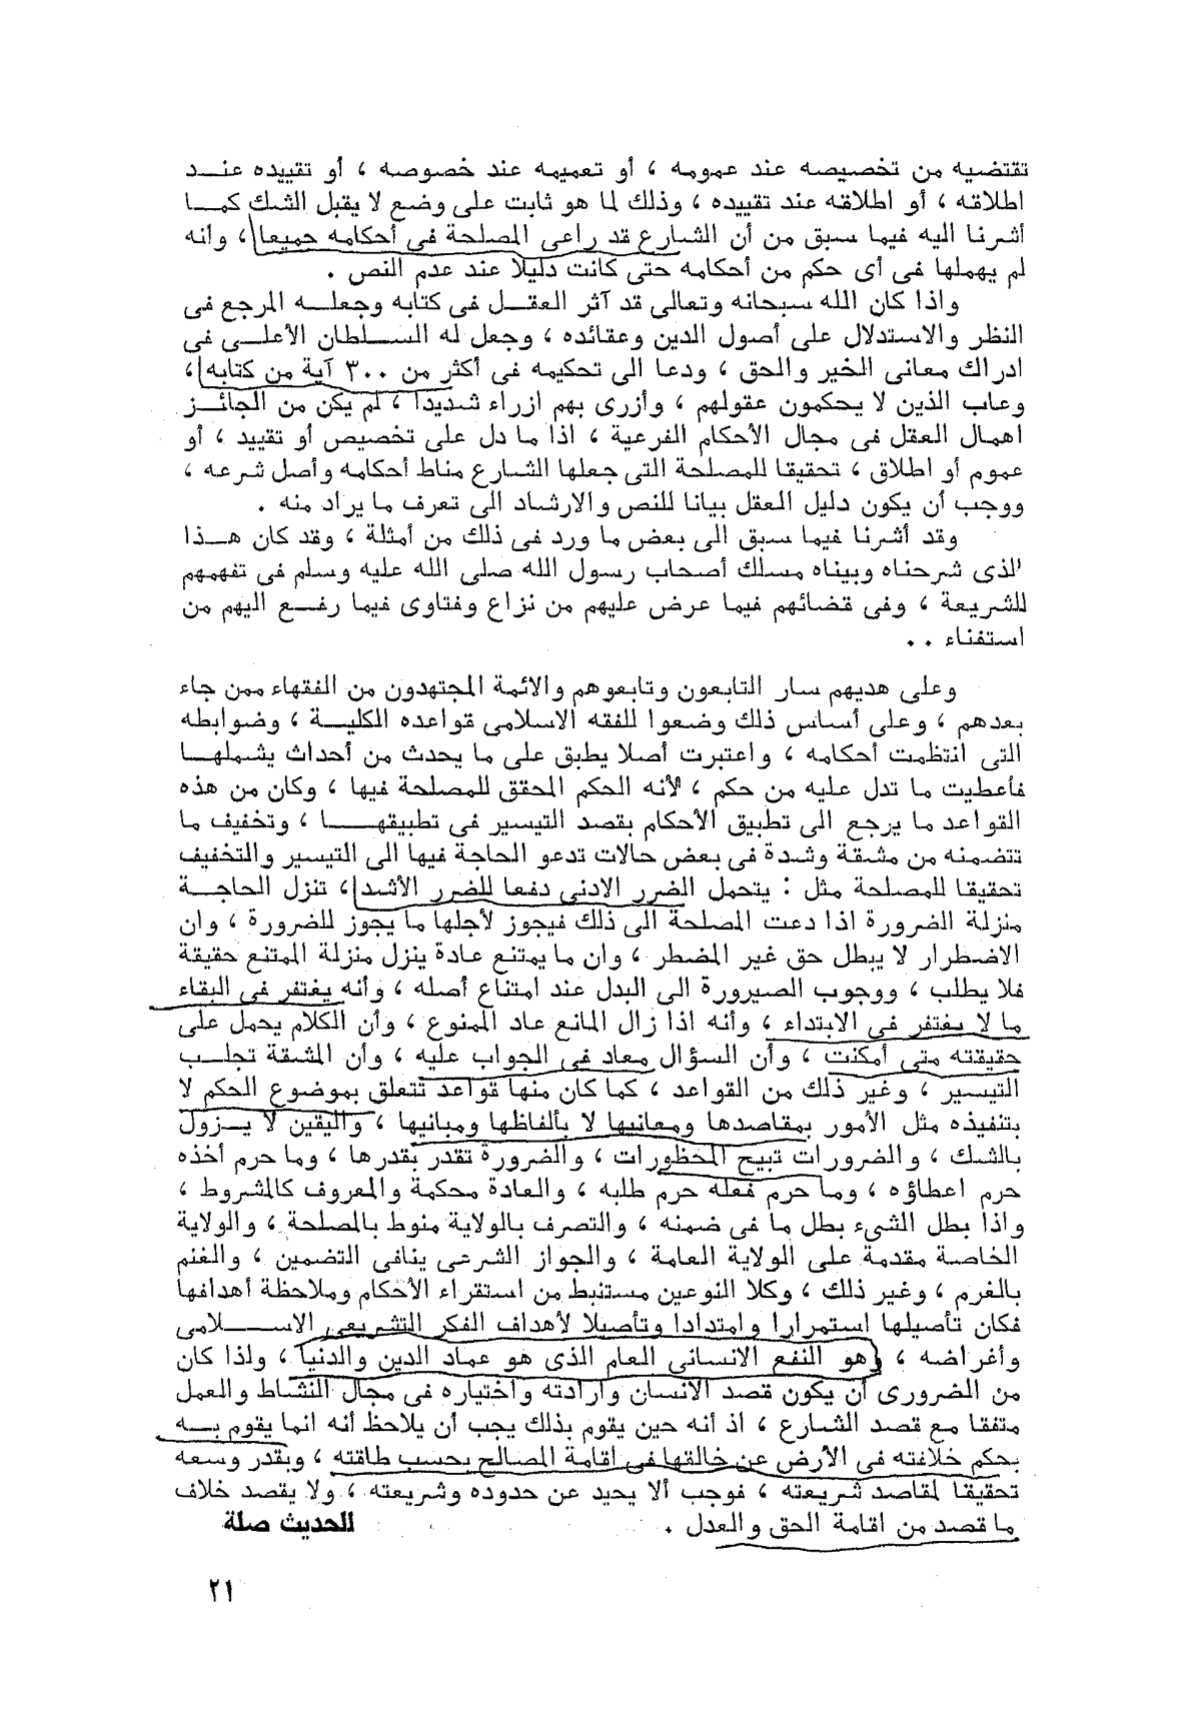 تقتضيه من تخصيصه عند عمومه ، أو تعميمه عند خصوصه ، أو تقييده عنـــد
اطلاقه ، أو اطلاقه عند تقييده ، وذلك لما هو ثابت على وضع لا يقبل الشك كمـــا
أشرنا اليه فيما سبق من أن الشارع قد راعى المصلحة فى أحكامه جميعا ، وأنه
لم يهملها فى أى حكم من أحكامه حتى كانت دليلا عند عدم النص .
واذا كان الله سبحانه وتعالى قد آثر العقـــل فى كتابه وجعلـــه المرجع فى
النظر والاستدلال على أصول الدين وعقائده ، وجعل له الســـلطان الأعلـــى فى
ادراك معانى الخير والحق ، ودعا الى تحكيمه فى أكثر من ٣٠٠ آية من كتابه ،
وعاب الذين لا يحكمون عقولهم ، وأزرى بهم ازراء شديدا ، لم يكن من الجائـــز
اهمال العقل فى مجال الأحكام الفرعية ، اذا ما دل على تخصيص أو تقييد ، أو
عموم أو اطلاق ، تحقيقا للمصلحة التى جعلها الشارع مناط أحكامه وأصل شرعه ،
ووجب أن يكون دليل العقل بيانا للنص والارشاد الى تعرف ما يراد منه .
وقد أشرنا فيما سبق الى بعض ما ورد فى ذلك من أمثلة ، وقد كان هـــذا
الذى شرحناه وبيناه مسلك أصحاب رسول الله صلى الله عليه وسلم فى تفهمهم
للشريعة ، وفى قضائهم فيما عرض عليهم من نزاع وفتاوى فيما رفـــع اليهم من
استفتاء . .
وعلى هديهم سار التابعون وتابعوهم والائمة المجتهدون من الفقهاء ممن جاء
بعدهم ، وعلى أساس ذلك وضعوا للفقه الاسلامى قواعده الكليـــة ، وضوابطه
التى انتظمت أحكامه ، واعتبرت أصلا يطبق على ما يحدث من أحداث يشملهـــا
فأعطيت ما تدل عليه من حكم ، لأنه الحكم المحقق للمصلحة فيها ، وكان من هذه
القواعد ما يرجع الى تطبيق الأحكام بقصد التيسير فى تطبيقهـــا ، وتخفيف ما
تتضمنه من مشقة وشدة فى بعض حالات تدعو الحاجة فيها الى التيسير والتخفيف
تحقيقا للمصلحة مثل : يتحمل الضرر الادنى دفعا للضرر الأشد ، تنزل الحاجـــة
منزلة الضرورة اذا دعت المصلحة الى ذلك فيجوز لأجلها ما يجوز للضرورة ، وان
الاضطرار لا يبطل حق غير المضطر ، وان ما يمتنع عادة ينزل منزلة الممتنع حقيقة
فلا يطلب ، ووجوب الصيرورة الى البدل عند امتناع أصله ، وأنه يغتفر فى البقاء
ما لا يغتفر فى الابتداء ، وأنه اذا زال المانع عاد الممنوع ، وأن الكلام يحمل على
حقيقته متى أمكنت ، وأن السؤال معاد فى الجواب عليه ، وأن المشقة تجلـــب
التيسير ، وغير ذلك من القواعد ، كما كان منها قواعد تتعلق بموضوع الحكم لا
بتنفيذه مثل الأمور بمقاصدها ومعانيها لا بألفاظها ومبانيها ، واليقين لا يـــزول
بالشك ، والضرورات تبيح المحظورات ، والضرورة تقدر بقدرها ، وما حرم أخذه
حرم اعطاؤه ، وما حرم فعله حرم طلبه ، والعادة محكمة والمعروف كالمشروط ،
واذا بطل الشىء بطل ما فى ضمنه ، والتصرف بالولاية منوط بالمصلحة ، والولاية
الخاصة مقدمة على الولاية العامة ، والجواز الشرعى ينافى التضمين ، والغنم
بالغرم ، وغير ذلك ، وكلا النوعين مستنبط من استقراء الأحكام وملاحظة أهدافها
فكان تأصيلها استمرارا وامتدادا وتأصيلا لأهداف الفكر التشريعى الاســـلامى
وأغراضه ، وهو النفع الانسانى العام الذى هو عماد الدين والدنيا ، ولذا كان
من الضرورى أن يكون قصد الانسان وارادته واختياره فى مجال النشاط والعمل
متفقا مع قصد الشارع ، اذ أنه حين يقوم بذلك يجب أن يلاحظ أنه انما يقوم بـــه
بحكم خلافته فى الأرض عن خالقها فى اقامة المصالح بحسب طاقته ، وبقدر وسعه
تحقيقا لمقاصد شريعته ، فوجب ألا يحيد عن حدوده وشريعته ، ولا يقصد خلاف
ما قصد من اقامة الحق والعدل .
للحديث صلة
٢١